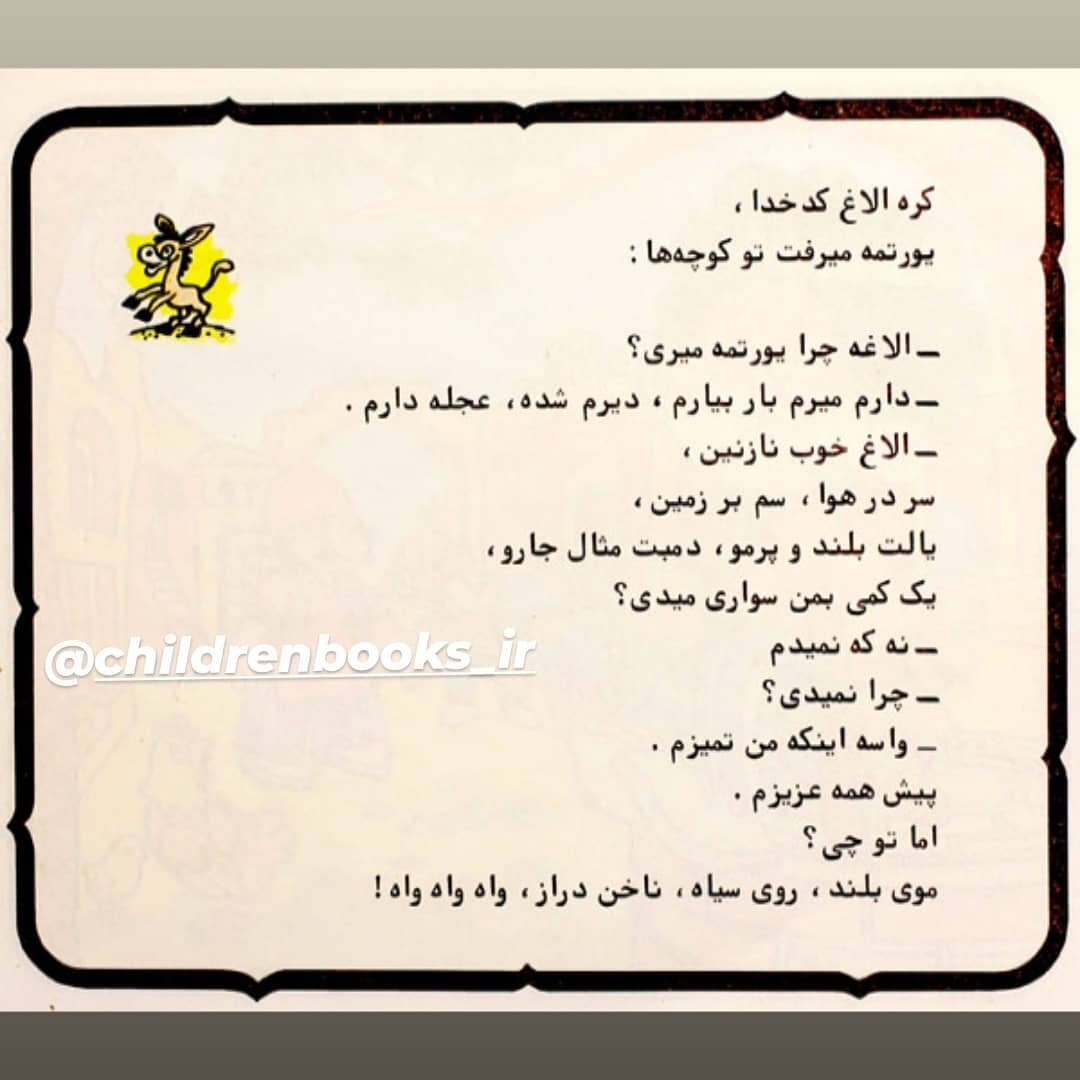 کره الاغ کدخدا ،
یورتمه میرفت تو کوچه‌ها :
ــ الاغه چرا یورتمه میری؟
ــ دارم میرم بار بیارم ، دیرم شده، عجله دارم .
ــ الاغ خوب نازنین ،
سر در هوا ، سم بر زمین ،
یالت بلند و پرمو، دمبت مثال جارو،
یک کمی بمن سواری میدی؟
ــ نه که نمیدم
ــ چرا نمیدی؟
ــ واسه اینکه من تمیزم .
پیش همه عزیزم .
اما تو چی؟
موی بلند ، روی سیاه ، ناخن دراز ، واه واه واه !
@childrenbooks_ir